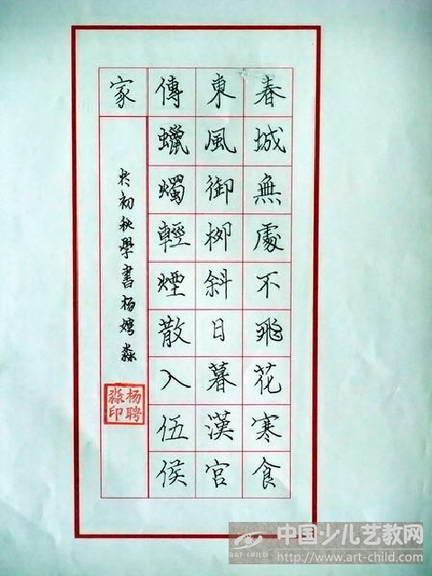 春城無處不飛花寒食
東風御柳斜日暮漢宮
傳蠟燭輕煙散入伍侯
家
初秋學書杨淼
杨聘淼印
中国少儿艺教网
ART CHILD
http://www.art-child.com